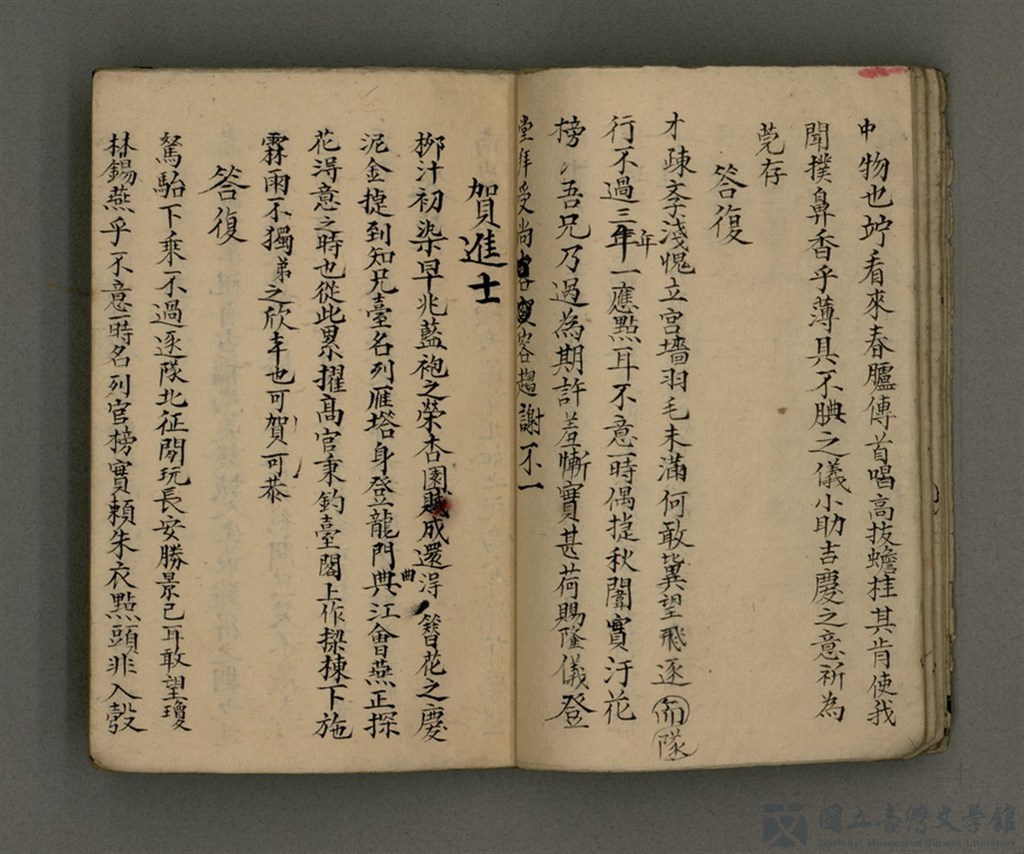 中物也竚看來春臚傳首唱高拔蟾桂其肯使我
聞撲鼻香乎薄具不腆之儀小助吉慶之意祈為
莞存
答復
才疎文淺愧立宮墻羽毛未滿何敢冀望飛逐隊
行不過三年一應點耳不意一時偶㨗秋闈實汙花
年
榜吾兄乃過為期許羞慚實甚荷賜隆儀登
堂拜受尚容趨謝不一
賀進士
柳汁初染早兆藍袍之榮杏園賦成還淂簪花之慶
泥金㨗到知兄臺名列雁塔身登龍門典江會燕正探
曲
花淂意之時也從此累擢高官秉鈞臺閣上作樑棟下施
霖雨不獨弟之欣幸也可賀可恭
答復
駑駘下乘不過逐隊北征閱玩長安勝景已耳敢望瓊
林錫燕乎不意一時名列官榜實賴朱衣點頭非入彀
國立臺灣文學館
National Museum of Taiwan Literature